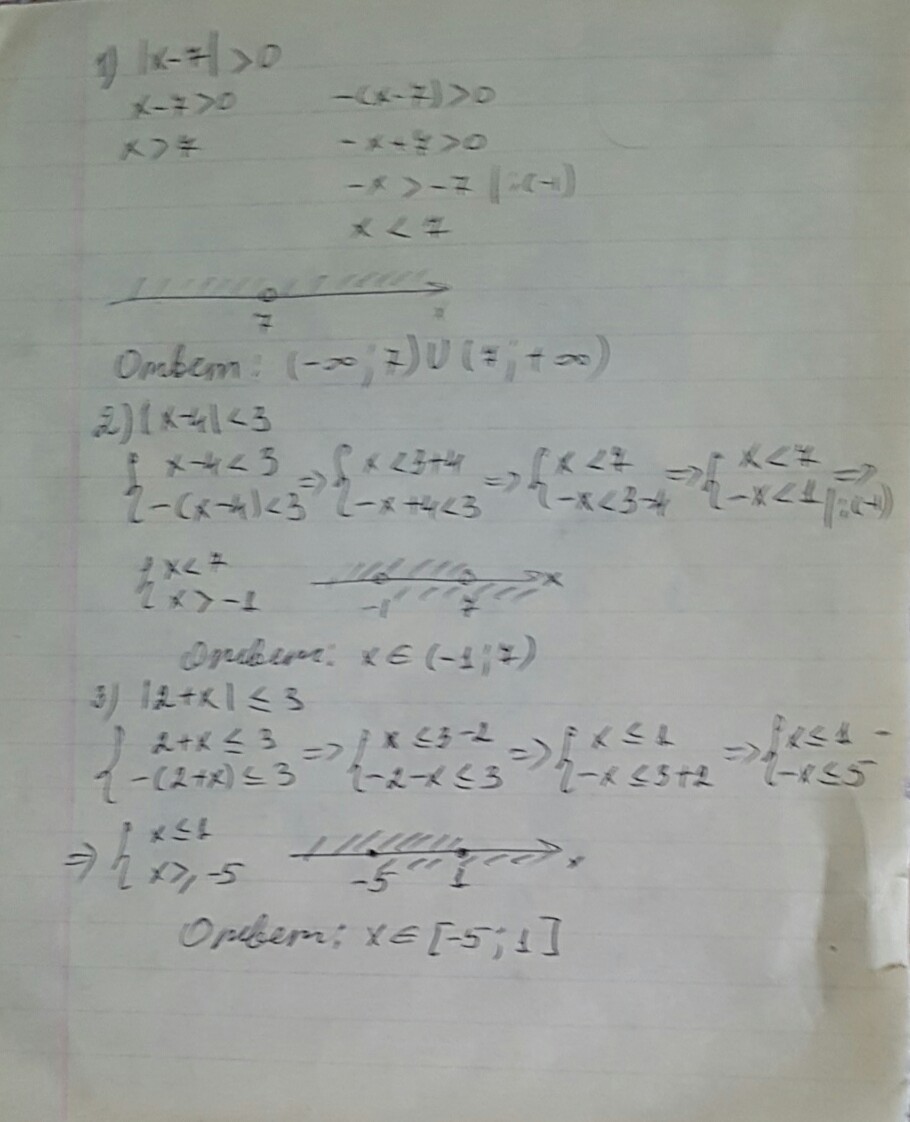 1) |x-7|>0
x-7>0 -(x-7)>0
x>7 -x+7>0
-x>-7 |:(-1)
x<7
7 x
Ответ: (-∞;7)∪(7;+∞)
2) |x-4|<3
{ x-4<3 => { x<3+4 => { x<7 => { x<7 =>
{ -(x-4)<3 { -x+4<3 { -x<3-4 { -x<1 |:(-1)
{ x<7 x
{ x>-1 -1 7
Ответ: x∈(-1;7)
3) |2+x|≤3
{ 2+x≤3 => { x≤3-2 => { x≤1 => { x≤1 -
{ -(2+x)≤3 { -2-x≤3 { -x≤3+2 { -x≤5
=> { x≤1 x
{ x≥-5 -5 1
Ответ: x∈[-5;1]